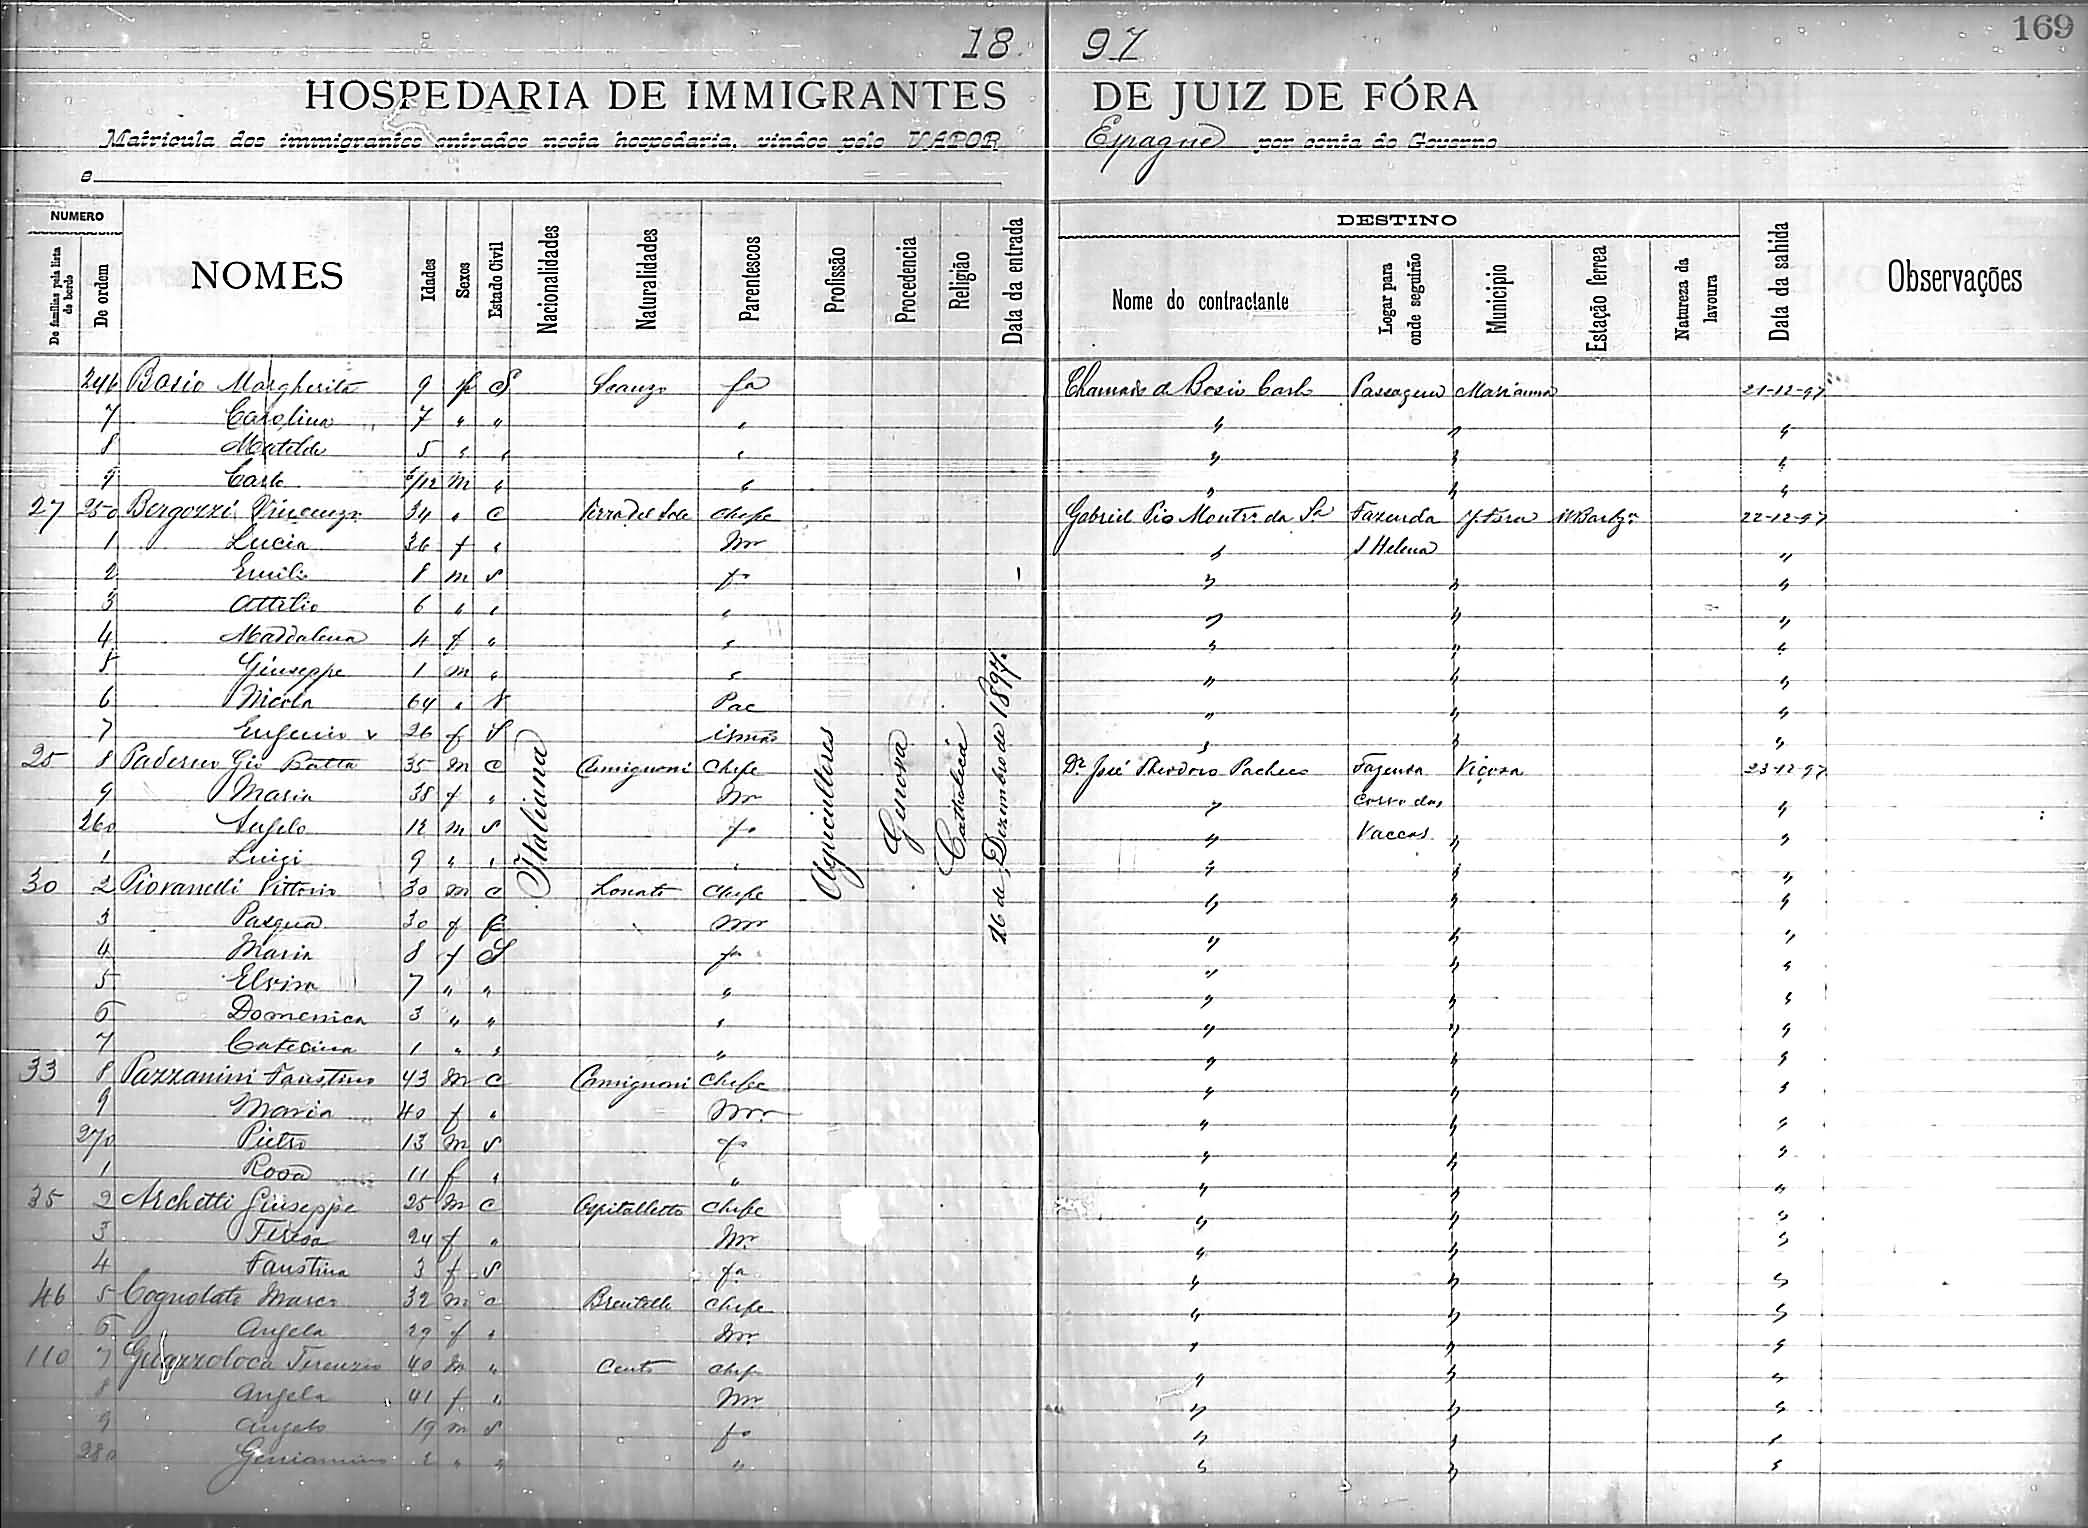 169
18 97
HOSPEDARIA DE IMMIGRANTES DE JUIZ DE FÓRA
Matricula dos immigrantes entrados nesta hospedaria, vindos pelo VAPOR Espagne por conta do Governo
e
NUMERO
De familias pela lista de bordo
De ordem
NOMES
Idades
Sexos
Estado Civil
Nacionalidades
Naturalidades
Parentescos
Profissão
Procedencia
Religião
Data da entrada
DESTINO
Nome do contractante
Logar para onde seguirão
Municipio
Estação ferrea
Natureza da lavoura
Data da sahida
Observações
246 Bosio Margherita 9 f S Scanzo fa Chamado de Bosio Carlo Passagem Marianna 21-12-97
7 Carolina 7 " " " " " "
8 Matilde 5 " " " " " "
9 Carlo /12 m " " " " "
27 250 Bergozzi Vincenzo 34 " C Terra del Sole chefe Gabriel Pio Montro da Sa Fazenda J. Fora 22-12-97
1 Lucia 36 f " Mer " S Helena "
2 Emilio 8 m S fo " " "
3 Attilio 6 " " " " " "
4 Maddalena 4 f " " " " "
5 Giuseppe 1 m " " " " "
6 Nicola 64 " V Pae " " "
7 Eugenia 26 f S irmã " " "
25 8 Paderno Gio Batta 35 m C Camignoni Chefe Dr José Theodoro Pacheco Fazenda Viçosa 23-12-97
9 Maria 38 f " Mer " Corro das "
260 Angelo 12 m S fo " Vaccas " "
1 Luigi 9 " " " " " "
30 2 Piovanelli Vittorio 30 m C Lonato Chefe " " "
3 Pasqua 30 f C Mer " " "
4 Maria 8 f S fa " " "
5 Elvira 7 " " " " " "
6 Domenica 3 " " " " " "
7 Caterina 1 " " " " " "
33 8 Pazzanini Faustino 43 m C Camignoni Chefe " " "
9 Maria 40 f " Mer " " "
270 Pietro 13 m S fo " " "
1 Rosa 11 f " " " " "
35 2 Archetti Giuseppe 25 m C Ospitalletto Chefe " " "
3 Teresa 24 f " Mer " " "
4 Faustina 3 f S fa " " "
46 5 Cognolato Marco 32 m C Brentelle Chefe " " "
6 Angela 29 f " Mer " " "
110 7 Guazzoloca Terenzio 40 m " Cento chefe " " "
8 Angela 41 f " Mer " " "
9 Angelo 19 m S fo " " "
280 " " " " " "
Italiana
Agricultores
Genova
Catholica
26 de Dezembro de 1897.